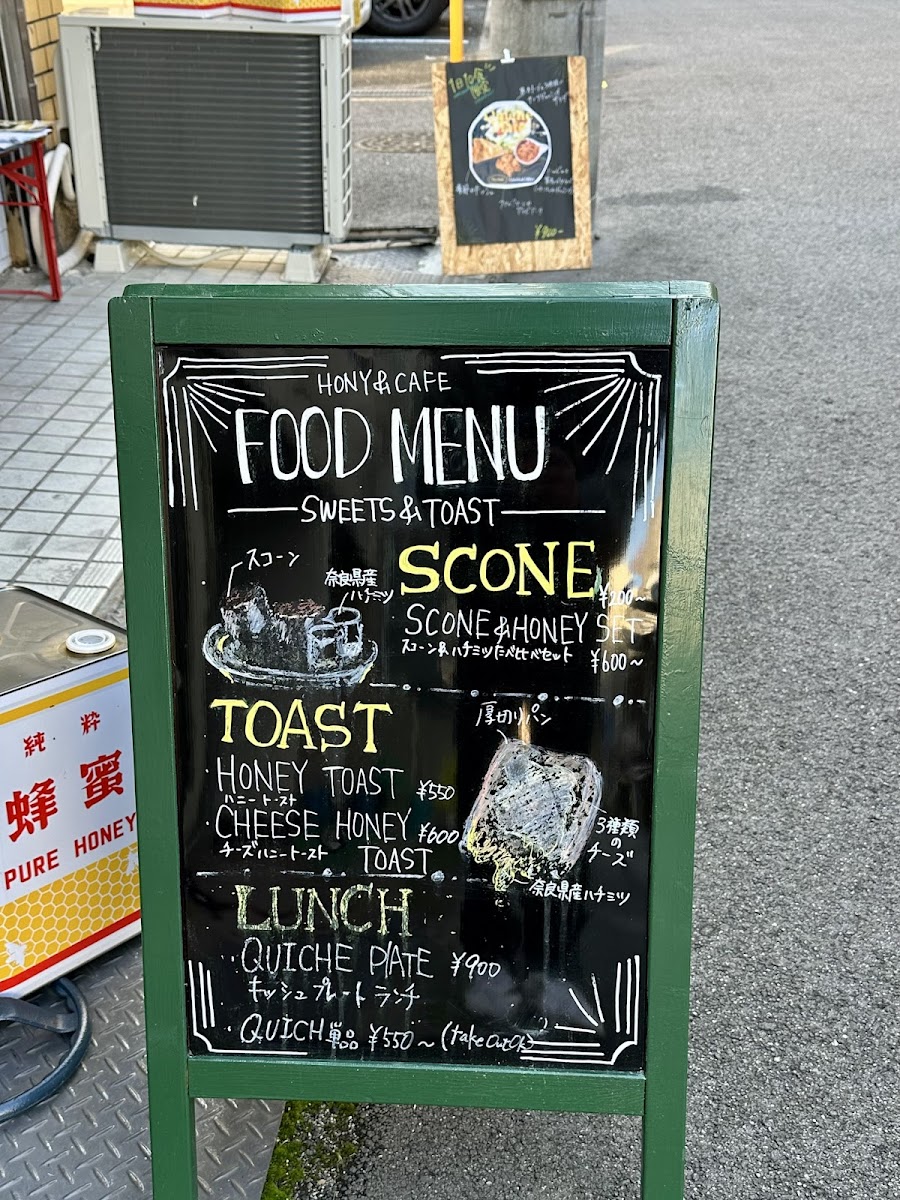 1日10食
限定
¥900~
HONY&CAFE
FOOD MENU
SWEETS&TOAST
スコーン
奈良県産
ハチミツ
SCONE
¥200~
SCONE&HONEY SET
スコーン&ハチミツたべ比べセット ¥600~
TOAST
厚切りパン
HONEY TOAST ¥550
ハニートースト
CHEESE HONEY ¥600
チーズハニートースト TOAST
3種類
の
チーズ
奈良県産ハチミツ
LUNCH
QUICHE PLATE ¥900
キッシュプレートランチ
QUICH単品 ¥550~(take out
純粋
蜂蜜
PURE HONEY